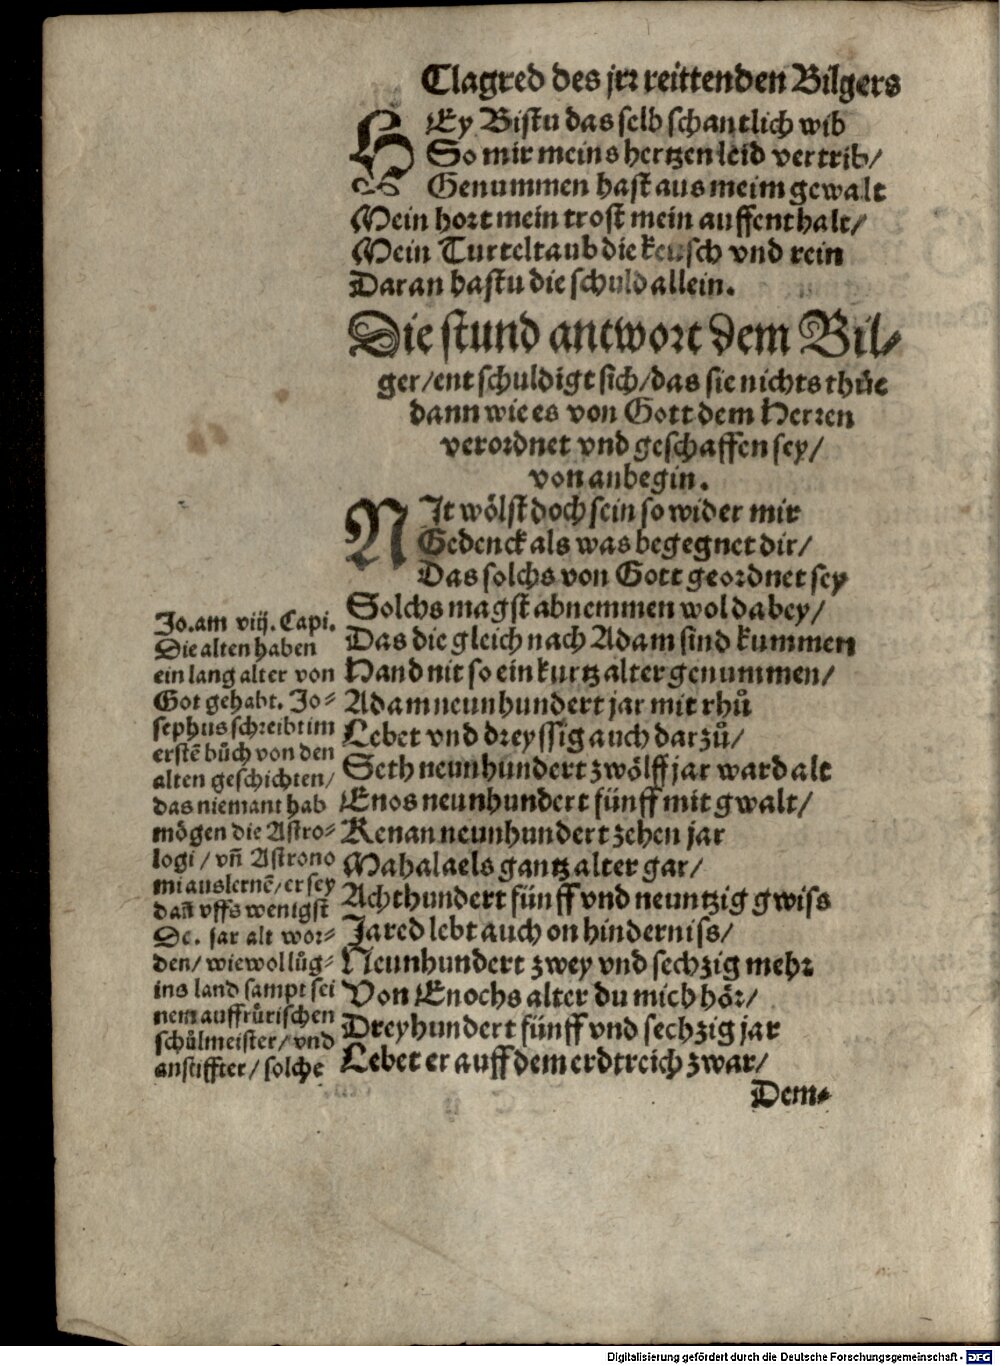 Clagred des jrr reittenden Bilgers
HEy Bistu das selb schantlich wib
So mir meins hertzen leid vertrib/
Genummen hast aus meim gewalt
Mein hort mein trost mein auffenthalt/
Mein Turteltaub die keusch vnd rein
Daran hastu die schuld allein.
Die stund antwort dem Bil⸗
ger/entschuldigt sich/das sie nichts thüe
dann wie es von Gott dem Herren
verordnet vnd geschaffen sey/
von anbegin.
NIt wölst doch sein so wider mir
Gedenck als was begegnet dir/
Das solchs von Gott geordnet sey
Solchs magst abnemmen wol dabey/
Das die gleich nach Adam sind kummen
Hand nit so ein kurtz alter genummen/
Adam neunhundert jar mit rhů
Lebet vnd dreyssig auch darzů/
Seth neunhundert zwölff jar ward alt
Enos neunhundert fünff mit gwalt/
Kenan neunhundert zehen jar
Mahalaels gantz alter gar/
Achthundert fünff vnd neuntzig gwiss
Jared lebt auch on hinderniss/
Neunhundert zwey vnd sechzig mehr
Von Enochs alter du mich hör/
Dreyhundert fünff vnd sechzig jar
Lebet er auff dem erdtreich zwar/
Dem⸗
Jo.am viij. Capi.
Die alten haben
ein lang alter von
Got gehabt. Jo⸗
sephus schreibt im
erstē bůch von den
alten geschichten/
das niemant hab
mögen die Astro⸗
logi/vn̄ Astrono
mi auslernē/er sey
dan̄ vffs wenigst
Dc. jar alt wor⸗
den/wiewol lüg⸗
ins land sampt sei
nem auffrürischen
schůlmeister/vnd
anstiffter/solche